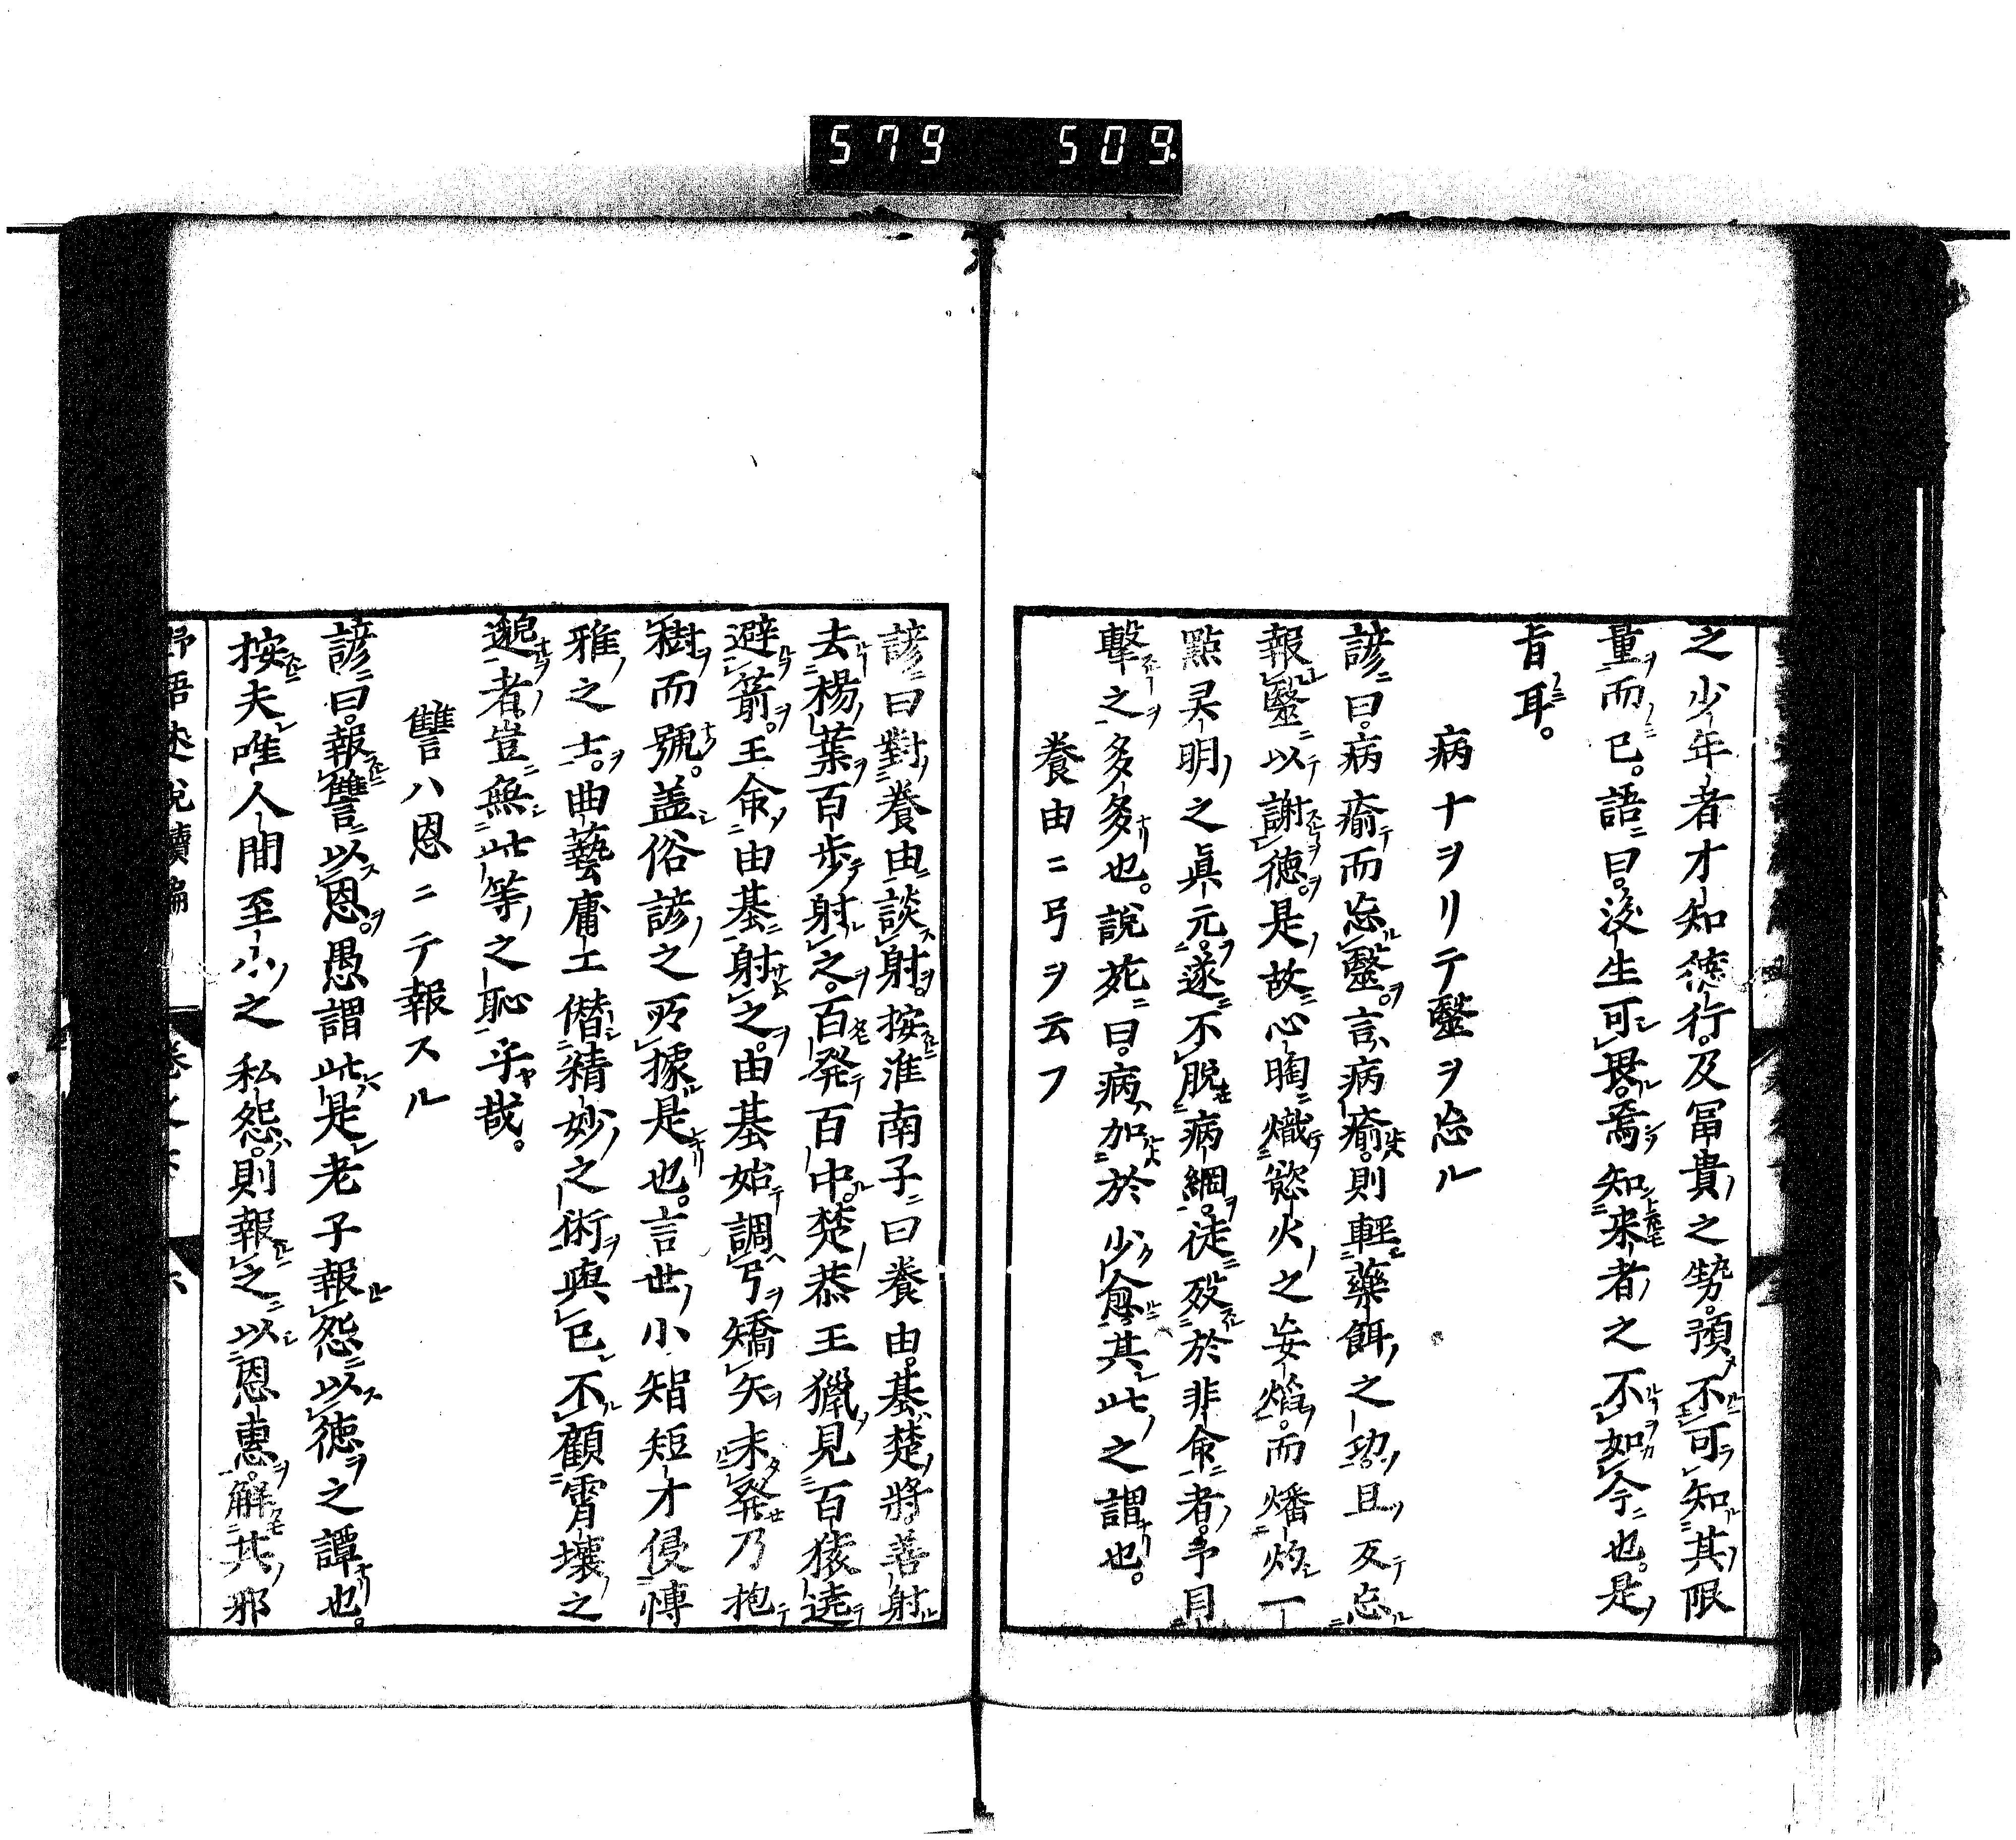 579 509
之少年者才知德行。及冨貴之勢。預不可知其限
量而已。語曰。後生可畏。焉知来者之不如今也。是
旨耳。
病ナヲリテ毉ヲ忘ル
諺曰。病瘉而忘毉。言病瘉。則輕藥餌之功。且反忘
報毉以謝德。是故心胸熾慾火之妄焔。而燔灼一
點灵明之眞元。遂不脱病綱。徒殁於非命者。予目
擊之多多也。說苑曰。病加於少愈。其此之謂也。
養由ニ弓ヲ云フ
諺曰對養由談射。按淮南子曰養由基。楚將。善射
去楊葉百歩射之。百発百中。楚恭王獵見百猿遶
避箭。王命由基射之。由基始調弓矯矢未発乃抱
樹而號。盖俗諺之所據是也。言世小智短才侵慱
雅之士。曲藝庸工僭精妙之術與已不顧霄壤之
邈者豈無此等之恥乎哉。
讐ハ恩ニテ報スル
諺曰。報讐以恩。愚謂此是老子報怨以徳之譚也。
按夫唯人間至小之私怨。則報之以恩惠。解其邪